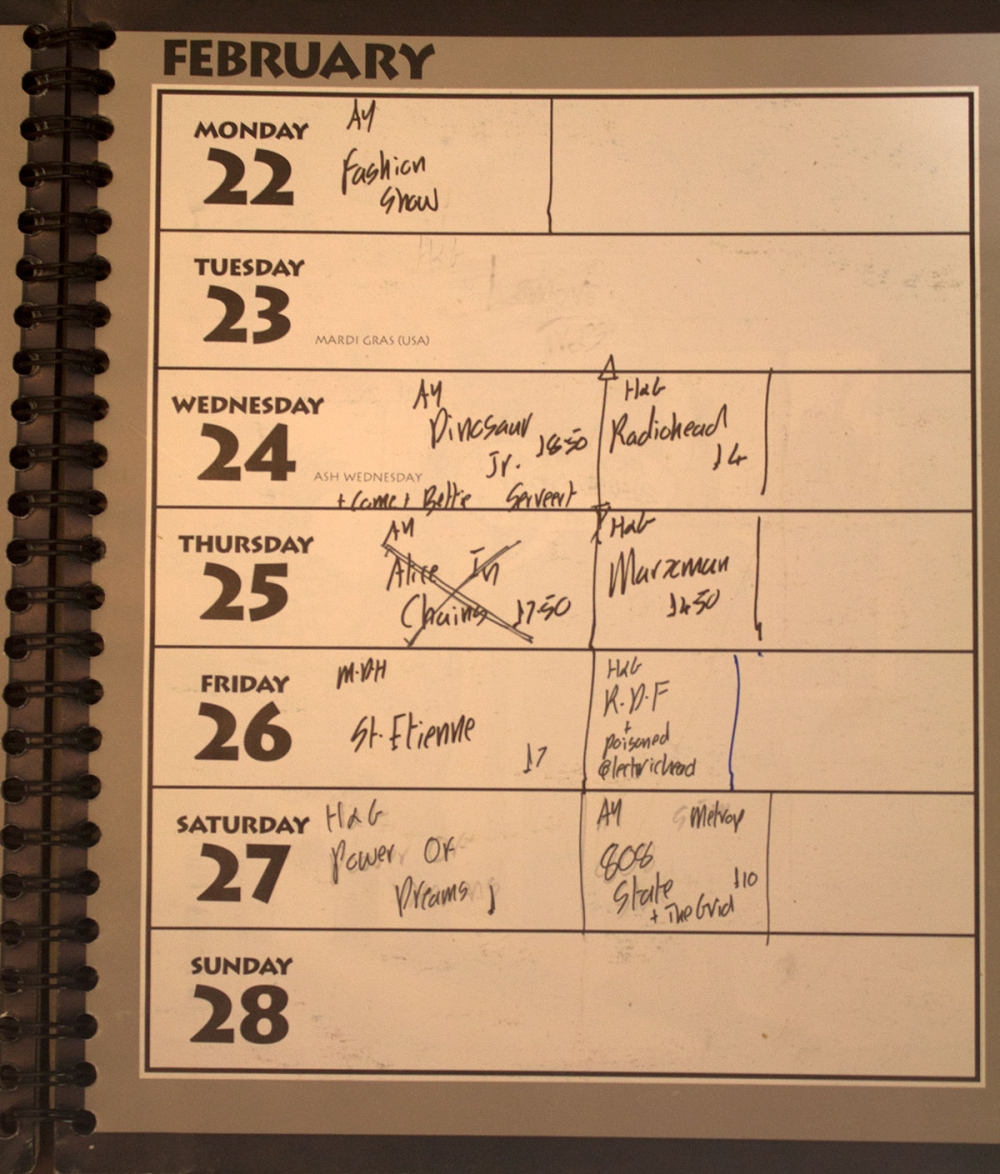 FEBRUARY
MONDAY
22
AY
Fashion
Show
TUESDAY
23
MARDI GRAS (USA)
WEDNESDAY
24
ASH WEDNESDAY
AY
Dinosaur
Jr. £8.50
+ Come + Bettie Serveert
H&G
Radiohead
£4
THURSDAY
25
AY
Alice In
Chains £7.50
H&G
Marxman
£4.50
FRIDAY
26
M.D.H
St. Etienne
£7
H&G
R.D.F
+
poisoned
electrichead
SATURDAY
27
H&G
Power Of
Dreams
AY Metrop
808
State £10
+ The Grid
SUNDAY
28